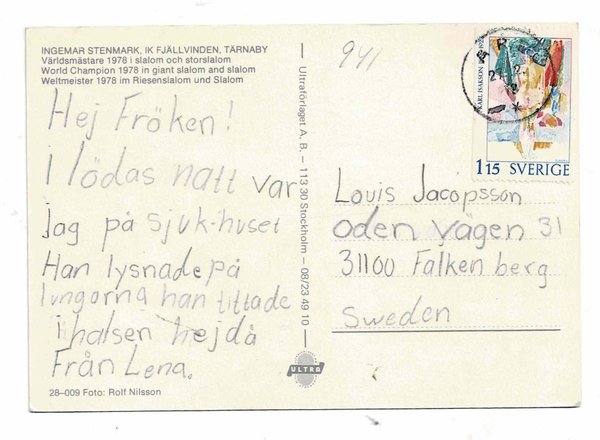 INGEMAR STENMARK, IK FJÄLLVINDEN, TÄRNABY
Världsmästare 1978 i slalom och storslalom
World Champion 1978 in giant slalom and slalom
Weltmeister 1978 im Riesenslalom und Slalom
Hej Fröken!
i lödas natt var
jag på sjuk-huset
Han lysnade på
lungorna han tittade
i halsen hejdå
Från Lena.
28-009 Foto: Rolf Nilsson
Ultraförlaget A. B. – 113 30 Stockholm – 08/23 49 10
ULTRA
941
KARL ISAKSON
115 SVERIGE
Louis Jacopsson
oden vägen 31
31100 Falken berg
Sweden